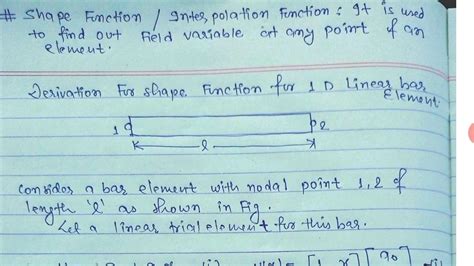 # Shape Function / Inter polation Function : It is used
to find out Field variable at any point of an
element.
Derivation For Shape Function for 1 D Linear bar
Element
1 2
l
Consider a bar element with nodal point 1, 2 of
length 'l' as shown in Fig.
Let a linear trial element for this bar.